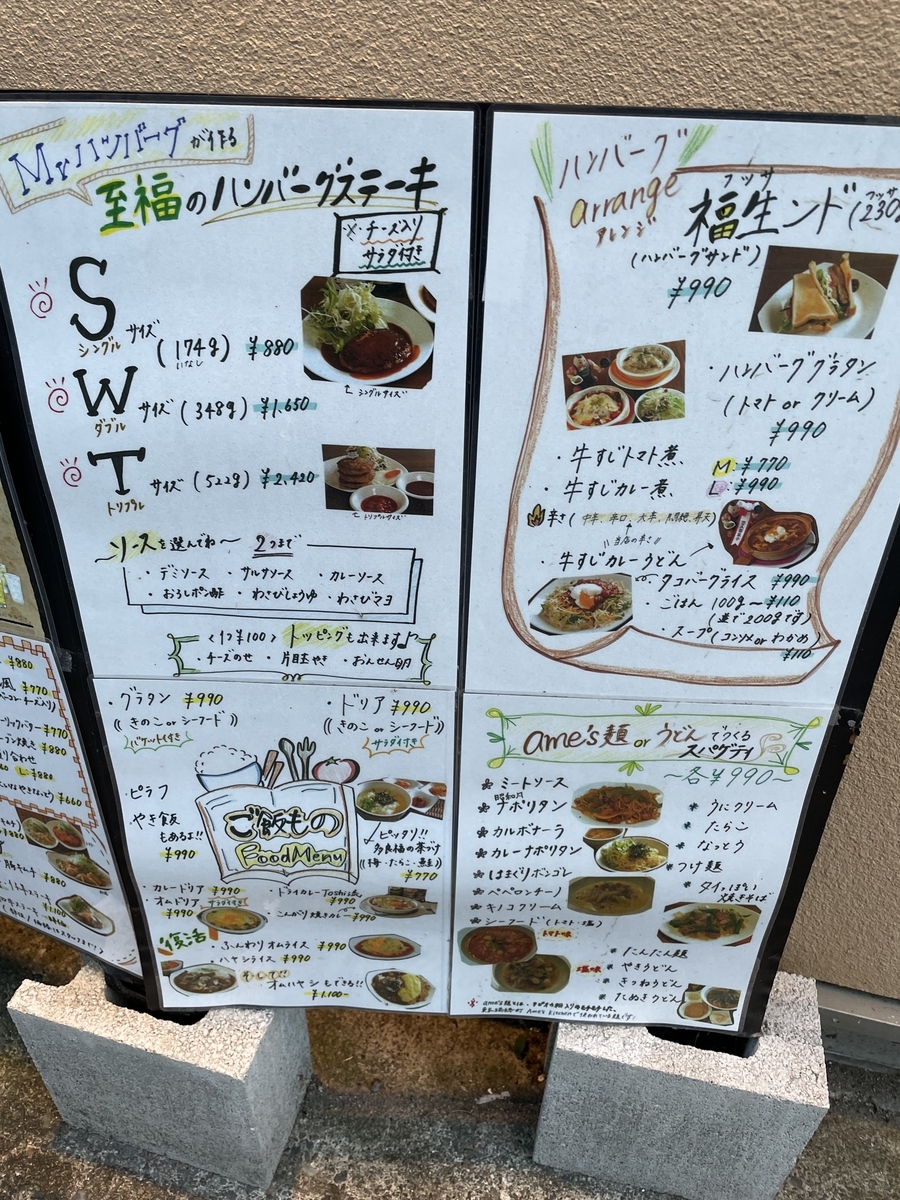 Mr.ハンバーグが作る
至福のハンバーグステーキ
※チーズ入り
サラダ付き
S サイズ (174g) ¥880
シングル
いなし
←シングルサイズ
W サイズ (348g) ¥1,650
ダブル
T サイズ (522g) ¥2,420
トリプル
←トリプルサイズ
〜ソースを選んでね〜 2つまで
・デミソース ・サルサソース ・カレーソース
・おろしポン酢 ・わさびじょうゆ ・わさびマヨ
〈1つ¥100〉トッピングも出来ます♪
・チーズのせ ・片目玉やき ・おんせん卵
ハンバーグ
arrange
アレンジ
フッサ
福生ンド(230g
フッサ
(ハンバーグサンド)
¥990
・ハンバーググラタン
(トマト or クリーム)
¥990
・牛すじトマト煮
・牛すじカレー煮
M ¥770
L ¥990
辛さ(中辛、辛口、大辛、
当店の辛さ!!
・牛すじカレーうどん
タコバーグライス ¥990
・ごはん 100g〜¥110
(並で200gです)
・スープ(コンソメorわかめ)
¥110
・グラタン ¥990
((きのこ or シーフード))
バゲット付き
・ドリア ¥990
((きのこ or シーフード))
サラダ付き
・ピラフ
・やき飯
もあるよ!!
¥990
ご飯もの
Food Menu
ピッタリ!!
多良福の茶づけ
((梅・たらこ・鮭))
¥770
・カレードリア ¥990
・オムドリア サラダ付き
¥990
・ドライカレーToshi流 ¥990
・こんがり焼きカレー ¥990
復活
・ふんわりオムライス ¥990
・ハヤシライス ¥990
そして!!
オムハヤシもできる!!
¥1,100-
ame's麺 or うどんでつくる
スパゲティ
〜各¥990〜
ミートソース
昭和風ナポリタン
カルボナーラ
カレーナポリタン
はまぐりボンゴレ
ペペロンチーノ
キノコクリーム
シーフード(トマト・塩)
うにクリーム
たらこ
なっとう
つけ麺
タイっぽい
焼きそば
トマト味
塩味
たんたん麺
やきうどん
きつねうどん
たぬきうどん
¥880
¥770
¥770
¥880
L ¥880
¥660
¥880
¥1,100